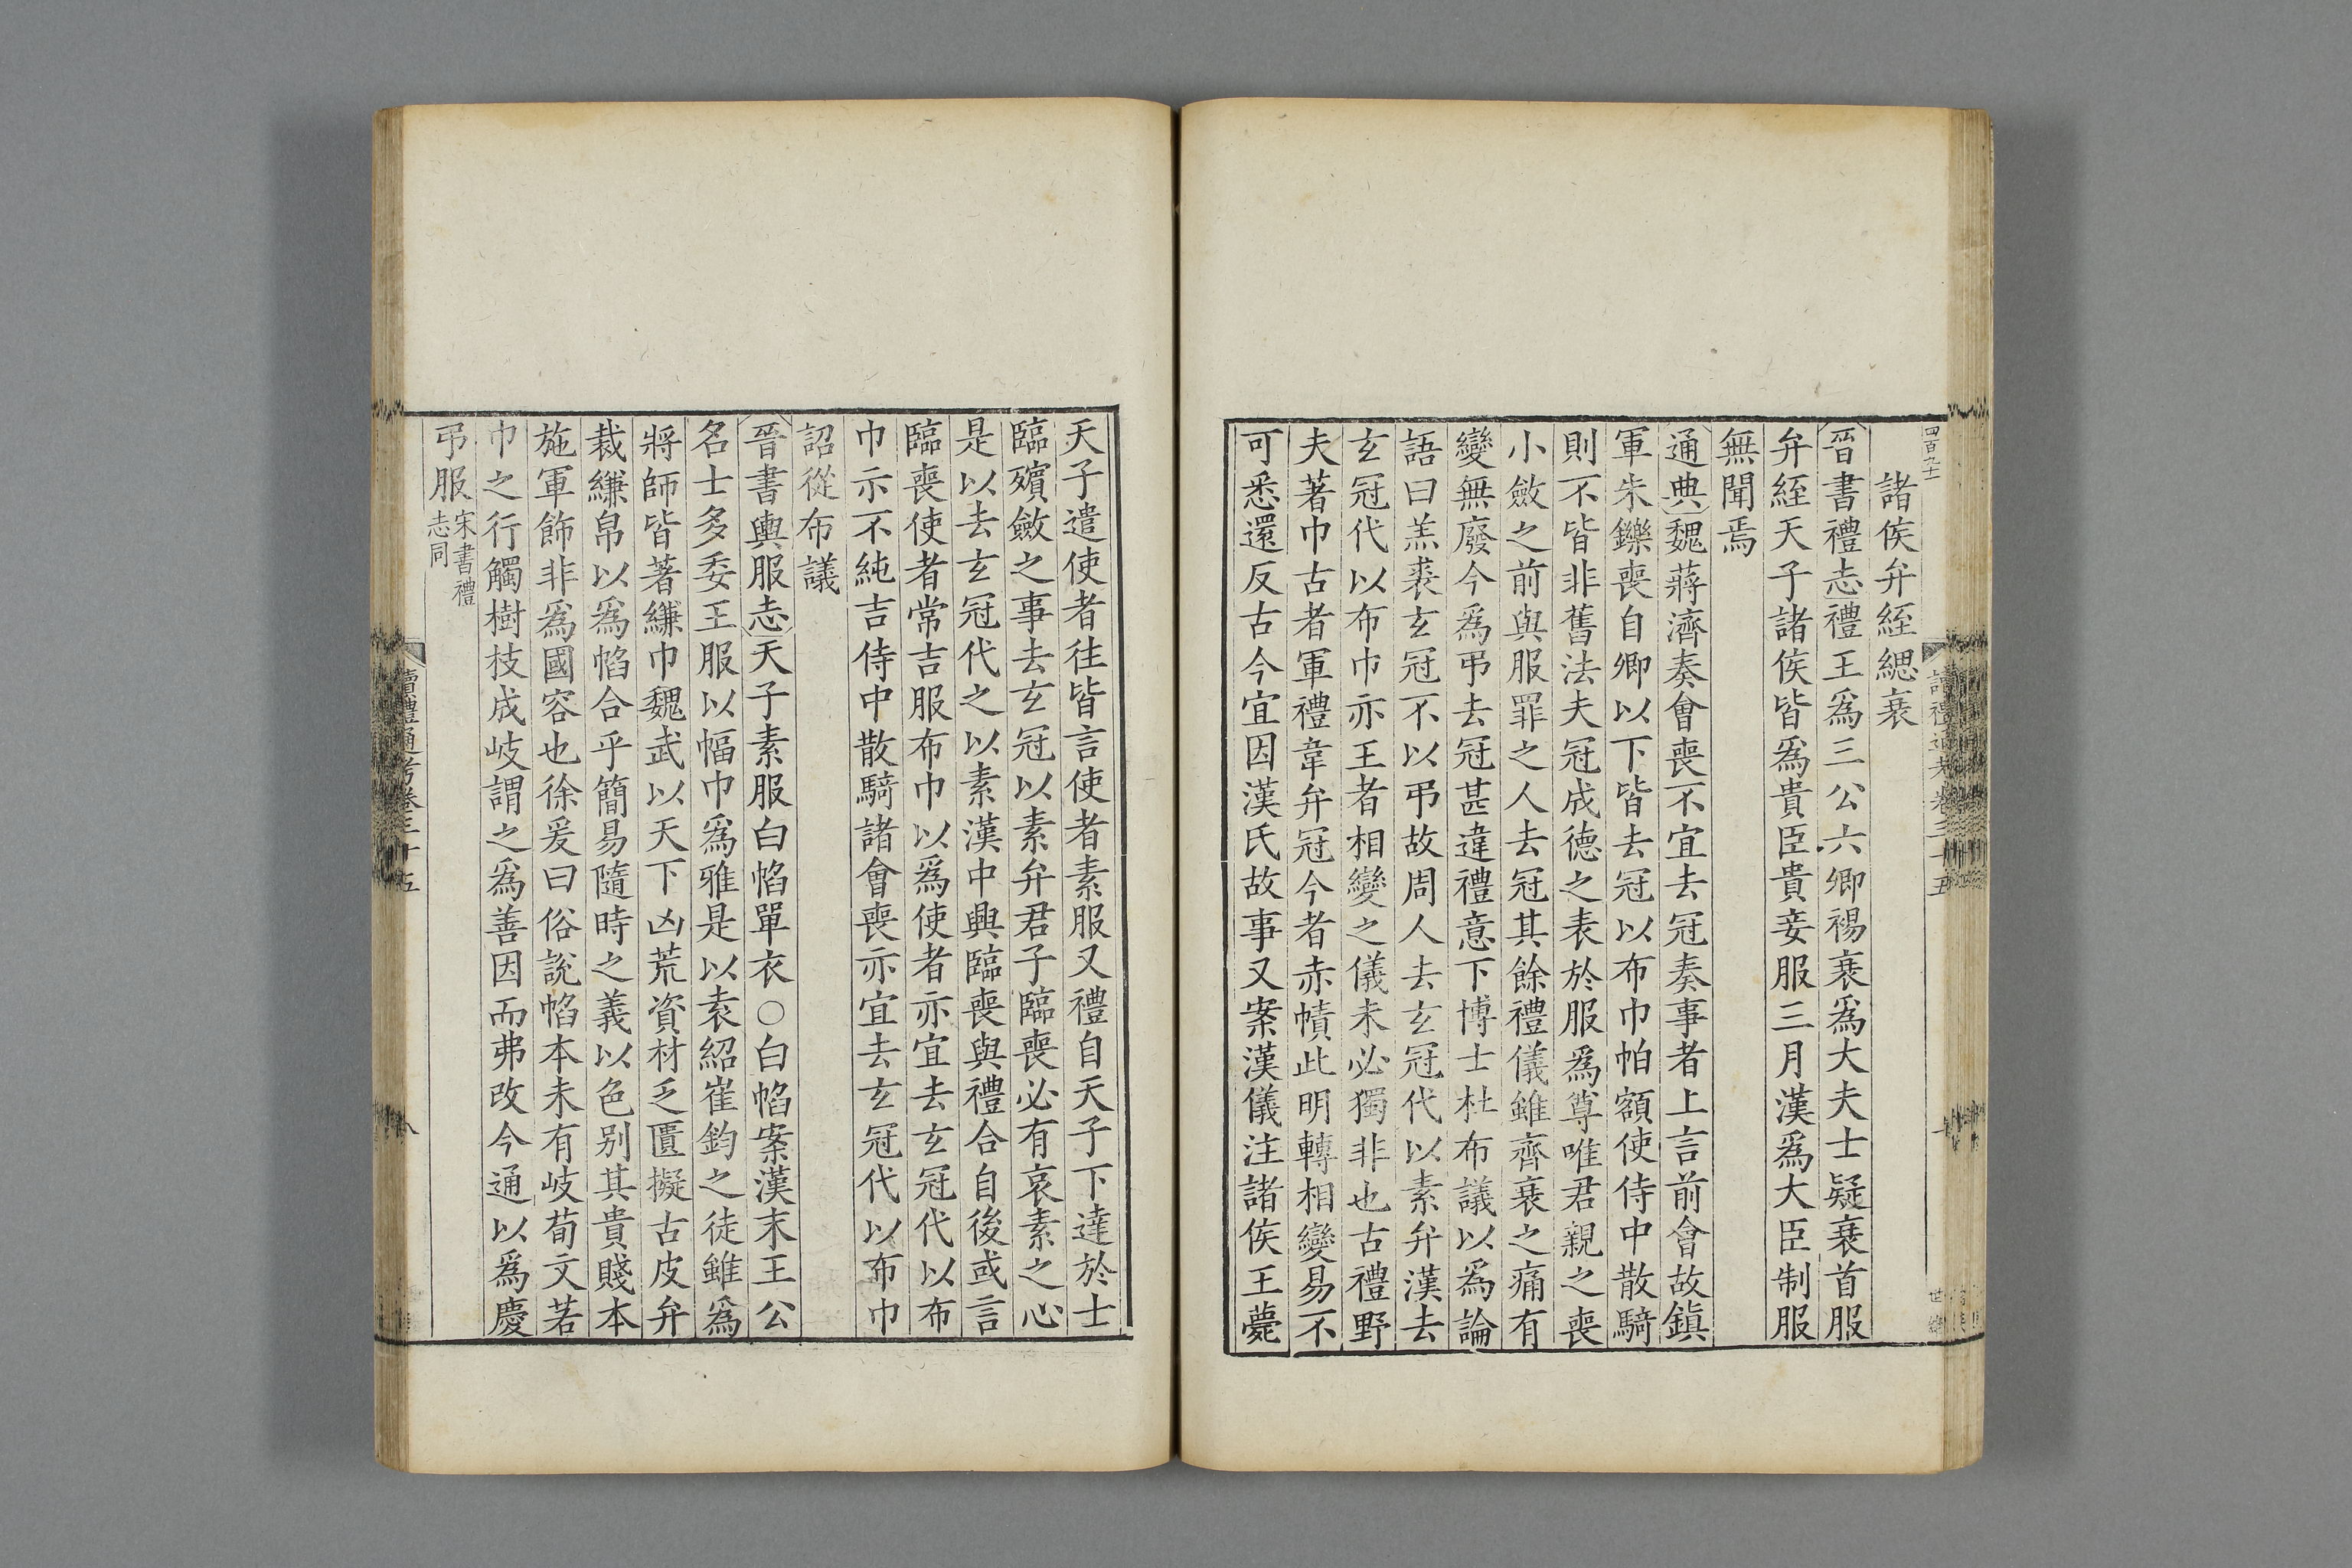 四百九十
諸侯弁絰緦衰
晉書禮志禮王爲三公六卿裼衰爲大夫士疑衰首服
弁絰天子諸侯皆爲貴臣貴妾服三月漢爲大臣制服
無聞焉
通典魏蔣濟奏會喪不宜去冠奏事者上言前會故鎮
軍朱鑠喪自卿以下皆去冠以布巾帕額使侍中散騎
則不皆非舊法夫冠成德之表於服爲尊唯君親之喪
小斂之前與服罪之人去冠其餘禮儀雖齊衰之痛有
變無廢今爲弔去冠甚違禮意下博士杜布議以爲論
語曰羔裘玄冠不以弔故周人去玄冠代以素弁漢去
玄冠代以布巾亦王者相變之儀未必獨非也古禮野
夫著巾古者軍禮韋弁冠今者赤幘此明轉相變易不
可悉還反古今宜因漢氏故事又案漢儀注諸侯王薨
天子遣使者往皆言使者素服又禮自天子下達於士
臨殯斂之事去玄冠以素弁君子臨喪必有哀素之心
是以去玄冠代之以素漢中興臨喪與禮合自後或言
臨喪使者常吉服布巾以爲使者亦宜去玄冠代以布
巾示不純吉侍中散騎諸會喪亦宜去玄冠代以布巾
詔從布議
晉書輿服志天子素服白帢單衣○白帢案漢末王公
名士多委王服以幅巾爲雅是以袁紹崔鈞之徒雖爲
將師皆著縑巾魏武以天下凶荒資材乏匱擬古皮弁
裁縑帛以爲帢合乎簡易隨時之義以色别其貴賤本
施軍飾非爲國容也徐爰曰俗說帢本未有岐荀文若
巾之行觸樹枝成岐謂之爲善因而弗改今通以爲慶
弔服宋書禮
志同
讀禮通考卷三十五
八